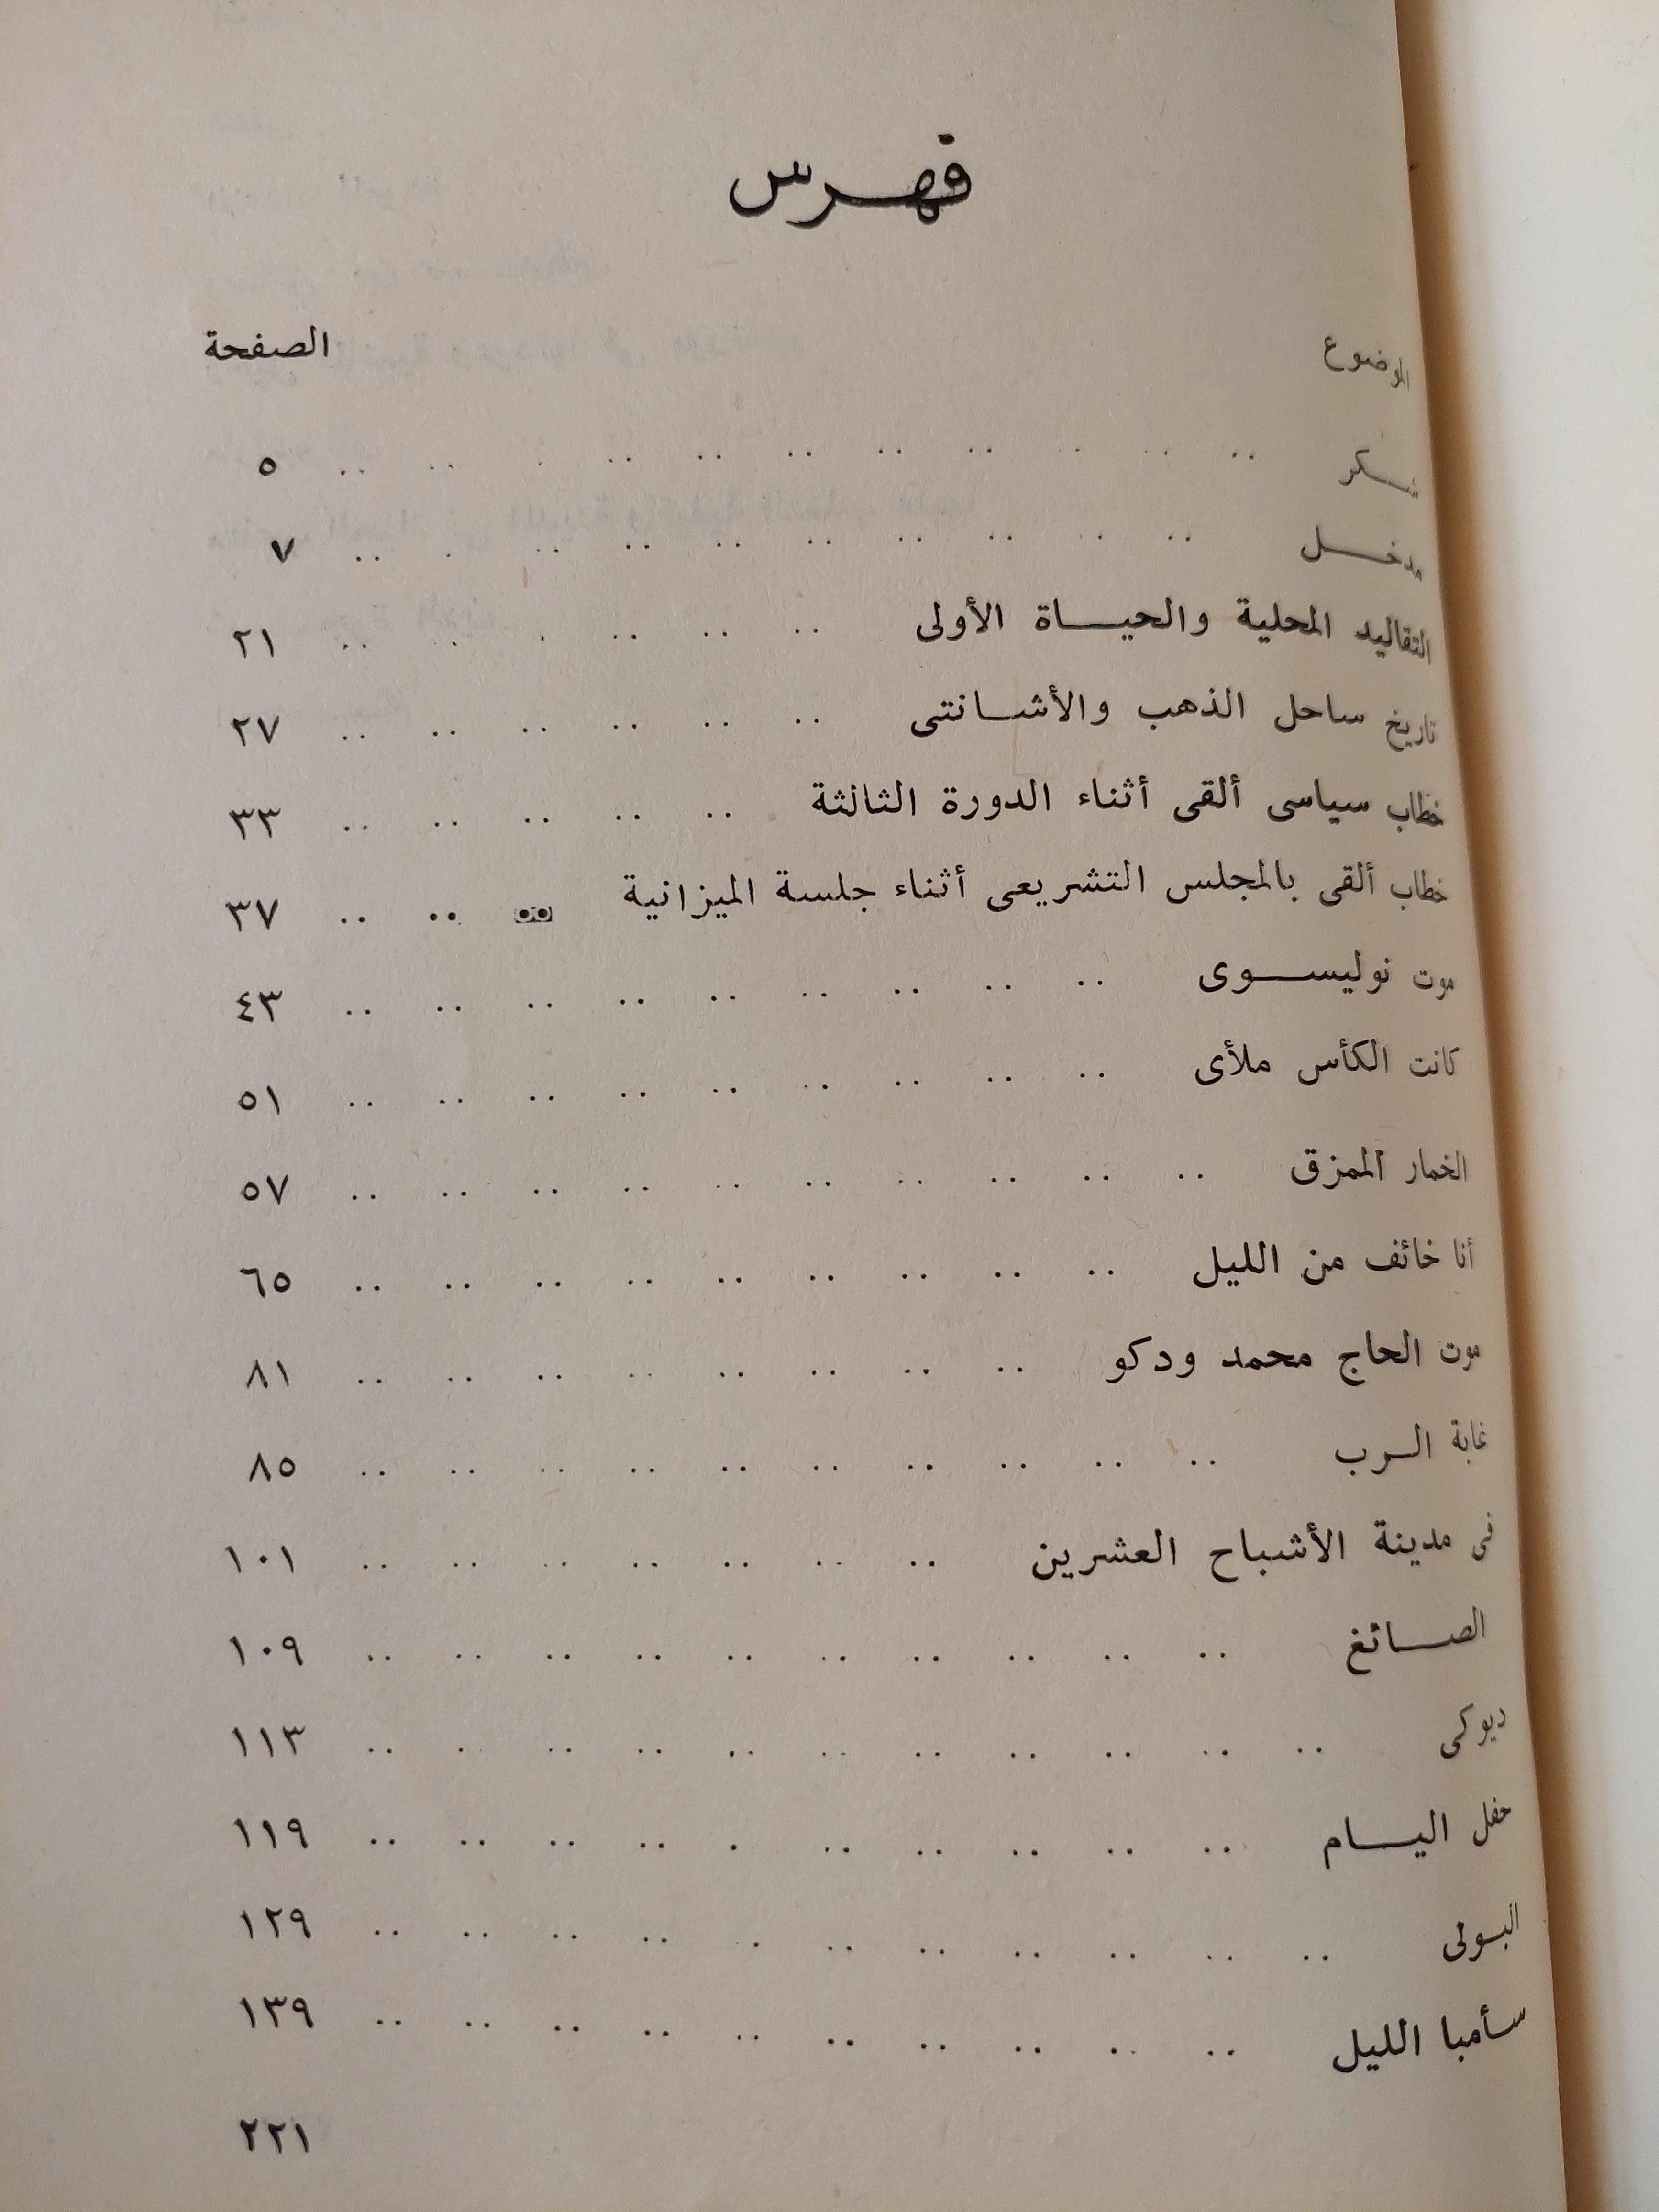 فهرس
الموضوع الصفحة
شكر .. .. .. .. .. .. .. .. .. .. .. ٥
مدخل .. .. .. .. .. .. .. .. .. .. ٧
التقاليد المحلية والحياة الأولى .. .. .. .. .. .. ٢١
تاريخ ساحل الذهب والأشانتى .. .. .. .. .. .. ٢٧
خطاب سياسى ألقى أثناء الدورة الثالثة .. .. .. .. .. ٣٣
خطاب ألقى بالمجلس التشريعى أثناء جلسة الميزانية .. .. .. ٣٧
موت نوليسوى .. .. .. .. .. .. .. .. .. ٤٣
كانت الكأس ملأى .. .. .. .. .. .. .. .. .. ٥١
الخمار الممزق .. .. .. .. .. .. .. .. .. .. ٥٧
أنا خائف من الليل .. .. .. .. .. .. .. .. .. ٦٥
موت الحاج محمد ودكو .. .. .. .. .. .. .. .. ٨١
غابة الرب .. .. .. .. .. .. .. .. .. .. ٨٥
فى مدينة الأشباح العشرين .. .. .. .. .. .. .. ١٠١
الصائغ .. .. .. .. .. .. .. .. .. .. ١٠٩
ديوكى .. .. .. .. .. .. .. .. .. .. .. ١١٣
حفل اليام .. .. .. .. .. .. .. .. .. .. ١١٩
البولى .. .. .. .. .. .. .. .. .. .. .. ١٢٩
سأمبا الليل .. .. .. .. .. .. .. .. .. .. ١٣٩
٢٢١